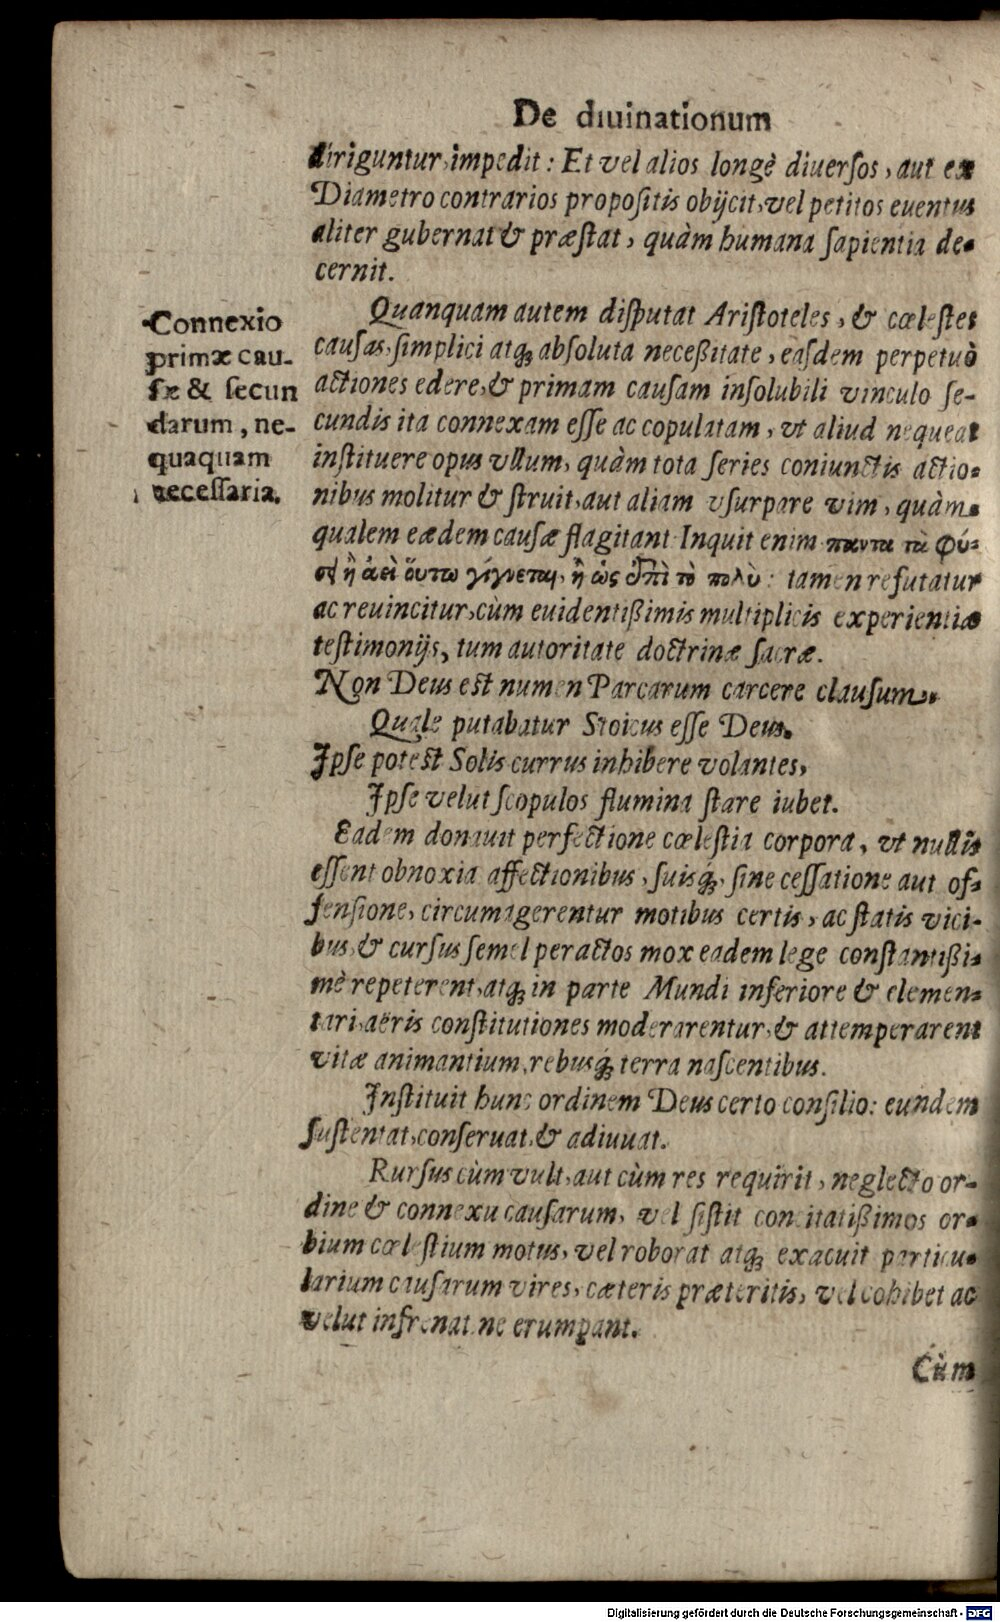 De diuinationum
diriguntur, impedit: Et vel alios longè diuersos, aut ex
Diametro contrarios propositis obijcit, vel petitos euentus
aliter gubernat & præstat, quàm humana sapientia de-
cernit.
Connexio
primæ cau-
sæ & secun
darum, ne-
quaquam
necessaria.
Quanquam autem disputat Aristoteles, & cœlestes
causas, simplici atq; absoluta necessitate, easdem perpetuò
actiones edere, & primam causam insolubili vinculo se-
cundis ita connexam esse ac copulatam, vt aliud nequeat
instituere opus vllum, quàm tota series coniunctis actio-
nibus molitur & struit, aut aliam vsurpare vim, quàm
qualem eædem causæ flagitant. Inquit enim παντα τὰ φύ-
σει ἢ ἀεὶ ὅυτω γίγνεται, ἢ ὡς ἐπὶ τὸ πολὺ: tamen refutatur
ac reuincitur, cùm euidentißimis multiplicis experientiæ
testimonijs, tum autoritate doctrinæ sacræ.
Non Deus est numen Parcarum carcere clausum,
Quale putabatur Stoicus esse Deus.
Ipse potest Solis currus inhibere volantes,
Ipse velut scopulos flumina stare iubet.
Eadem donauit perfectione cœlestia corpora, vt nullis
essent obnoxia affectionibus, suisq́;, sine cessatione aut of-
fensione, circumagerentur motibus certis, ac statis vici-
bus, & cursus semel peractos mox eadem lege constantißi-
mè repeterent, atq; in parte Mundi inferiore & elemen-
tari, aëris constitutiones moderarentur, & attemperarent
vitæ animantium, rebusq́; terra nascentibus.
Instituit hunc ordinem Deus certo consilio: eundem
sustentat, conseruat, & adiuuat.
Rursus cùm vult, aut cùm res requirit, neglecto or-
dine & connexu causarum, vel sistit concitatißimos or-
bium cœlestium motus, vel roborat atq; exacuit particu-
larium causarum vires, cæteris præteritis, vel cohibet ac
velut infrenat ne erumpant.
Cùm
Digitalisierung gefördert durch die Deutsche Forschungsgemeinschaft - DFG